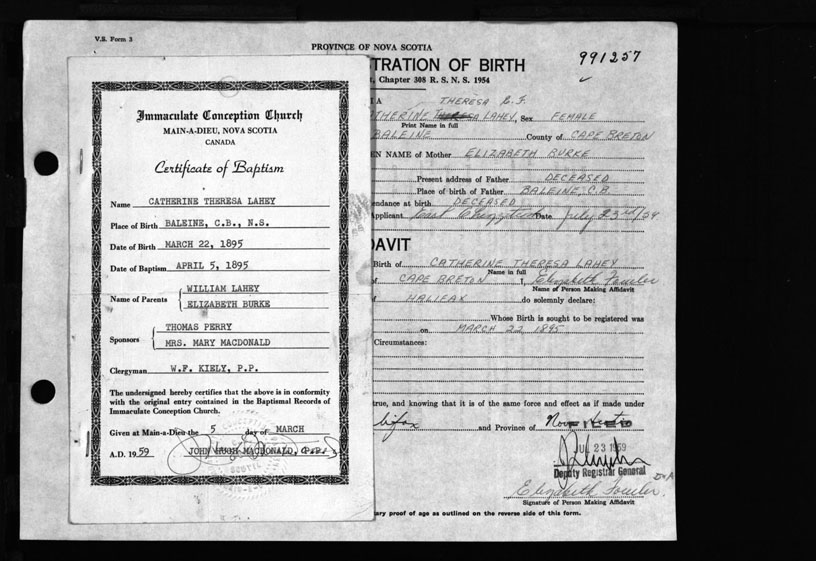 V.S. Form 3
PROVINCE OF NOVA SCOTIA
TRATION OF BIRTH
991257
Chapter 308 R. S. N. S. 1954
Immaculate Conception Church
MAIN-A-DIEU, NOVA SCOTIA
CANADA
Certificate of Baptism
Name CATHERINE THERESA LAHEY
Place of Birth BALEINE, C.B., N.S.
Date of Birth MARCH 22, 1895
Date of Baptism APRIL 5, 1895
Name of Parents WILLIAM LAHEY
ELIZABETH BURKE
Sponsors THOMAS PERRY
MRS. MARY MACDONALD
Clergyman W.F. KIELY, P.P.
The undersigned hereby certifies that the above is in conformity
with the original entry contained in the Baptismal Records of
Immaculate Conception Church.
Given at Main-a-Dieu the 5 day of MARCH
A.D. 1959 JOHN HUGH MACDONALD, P.P.
IA THERESA
THERINE THERESA LAHEY, Sex FEMALE
Print Name in full
BALEINE County of CAPE BRETON
EN NAME of Mother ELIZABETH BURKE
Present address of Father DECEASED
Place of birth of Father BALEINE, C.B.
endance at birth DECEASED
Applicant East Date July 23rd/59
DAVIT
Birth of CATHERINE THERESA LAHEY
Name in full
of CAPE BRETON I, Elizabeth
Name of Person Making Affidavit
f HALIFAX do solemnly declare:
Whose Birth is sought to be registered was
on MARCH 22 1895
Circumstances:
true, and knowing that it is of the same force and effect as if made under
lifax and Province of Nova Scotia
JUL 23 1959
Deputy Registrar General
Elizabeth
Signature of Person Making Affidavit
ary proof of age as outlined on the reverse side of this form.